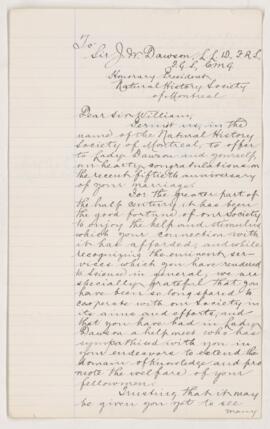 To
Sir J. W. Dawson, L L D. F R S.
F. G. S., C M G
Honorary President
Natural History Society
of Montreal
Dear Sir William,
Permit us, in the
name of the Natural History
Society of Montreal, to offer
to Lady Dawson and yourself
our hearty congratulations on
the recent fiftieth anniversary
of your marriage.
For the greater part of
the half century it has been
the good fortune of our Society
to enjoy the help and stimulus
which your connection with
it has afforded, and while
recognizing the eminent ser-
vices which you have rendered
to science in general, we are
specially grateful that you
have been so long spared to
cooperate with our Society in
its aims and efforts, and
that you have had in Lady
Dawson a helpmeet who has
sympathised with you in
your endeavors to extend the
domain of knowledge and pro
mote the welfare of your
fellowmen.
Trusting that it may
be given you yet to see
many